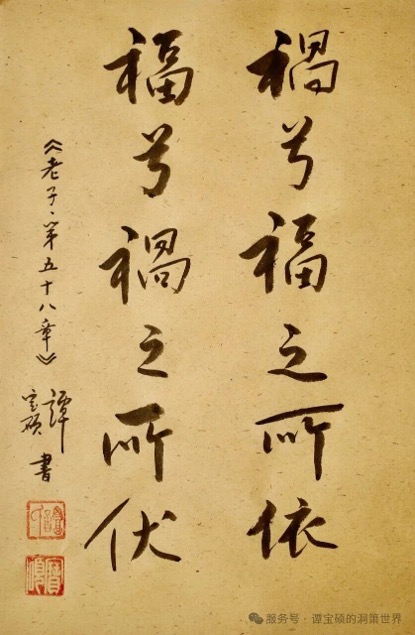 禍兮福之所依
福兮禍之所伏
《老子·第五十八章》
譚寶碩書
服务号·谭宝硕的洞策世界